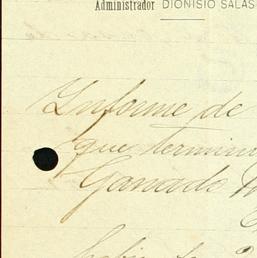 Administrador DIONISIO SALAS
Informe de
que termin
Ganado